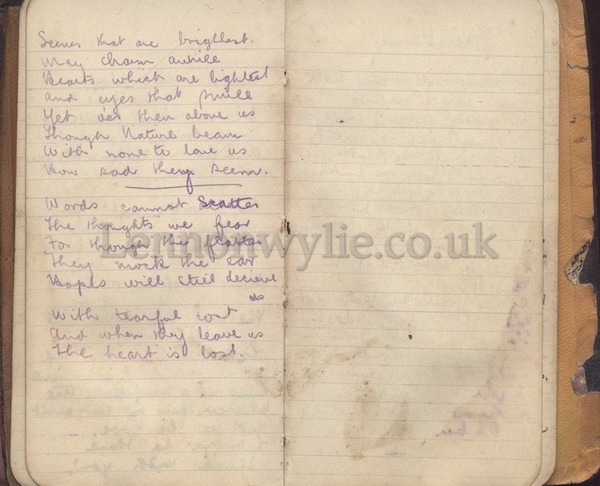 Scenes that are brightest.
May charm awhile
Hearts which are lightest
and eyes that smile
Yet o'er them above us
Though Nature beam
With none to love us
How sad they seem.
Words cannot Scatter
The thoughts we fear
For though they flatter
They mock the ear
Hopes will still deceive
us
With tearful cost
And when they leave us
The heart is lost.
Lennonwylie.co.uk